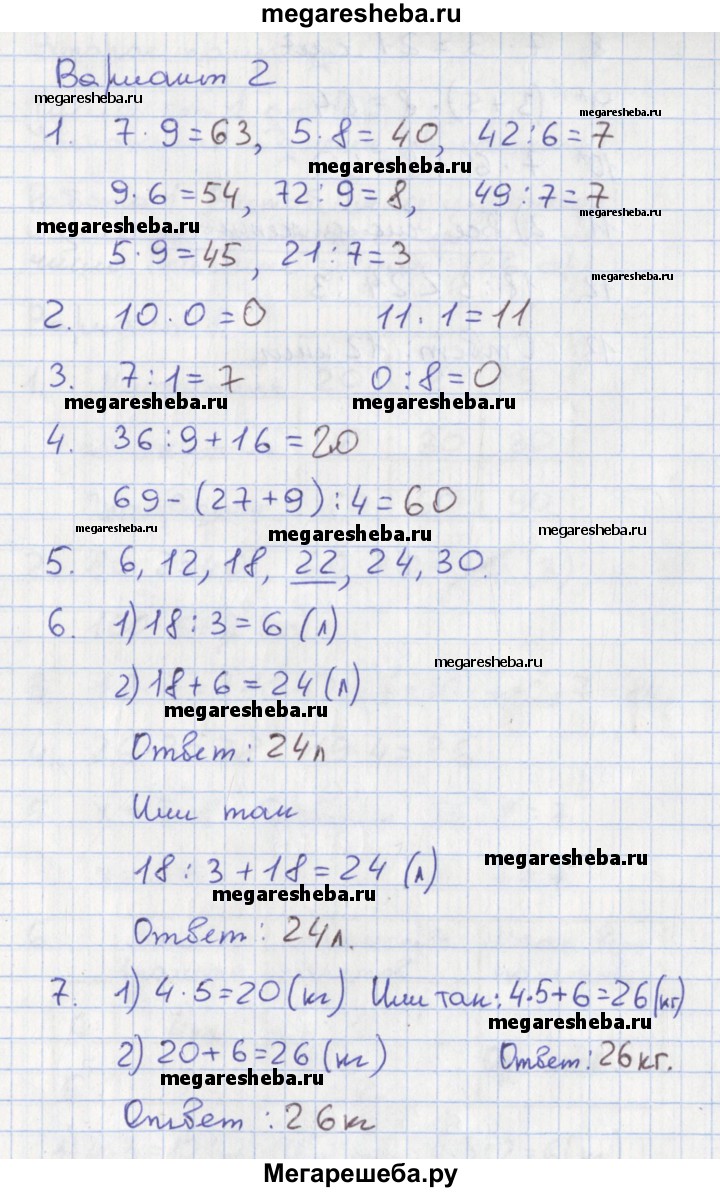 megaresheba.ru
Вариант 2
megaresheba.ru
megaresheba.ru
1. 7·9=63, 5·8=40, 42:6=7
megaresheba.ru
9·6=54, 72:9=8, 49:7=7
megaresheba.ru
megaresheba.ru
5·9=45, 21:7=3
megaresheba.ru
2. 10·0=0 11·1=11
3. 7:1=7 0:8=0
megaresheba.ru megaresheba.ru
4. 36:9+16=20
69-(27+9):4=60
megaresheba.ru megaresheba.ru megaresheba.ru
5. 6, 12, 18, 22, 24, 30.
6. 1) 18:3=6 (л)
megaresheba.ru
2) 18+6=24 (л)
megaresheba.ru
Ответ: 24л
Или так
18:3+18=24 (л)
megaresheba.ru
megaresheba.ru
Ответ: 24л.
7. 1) 4·5=20 (кг) Или так: 4·5+6=26 (кг)
megaresheba.ru
2) 20+6=26 (кг) Ответ: 26кг.
megaresheba.ru
Ответ: 26кг
Мегарешеба.ру